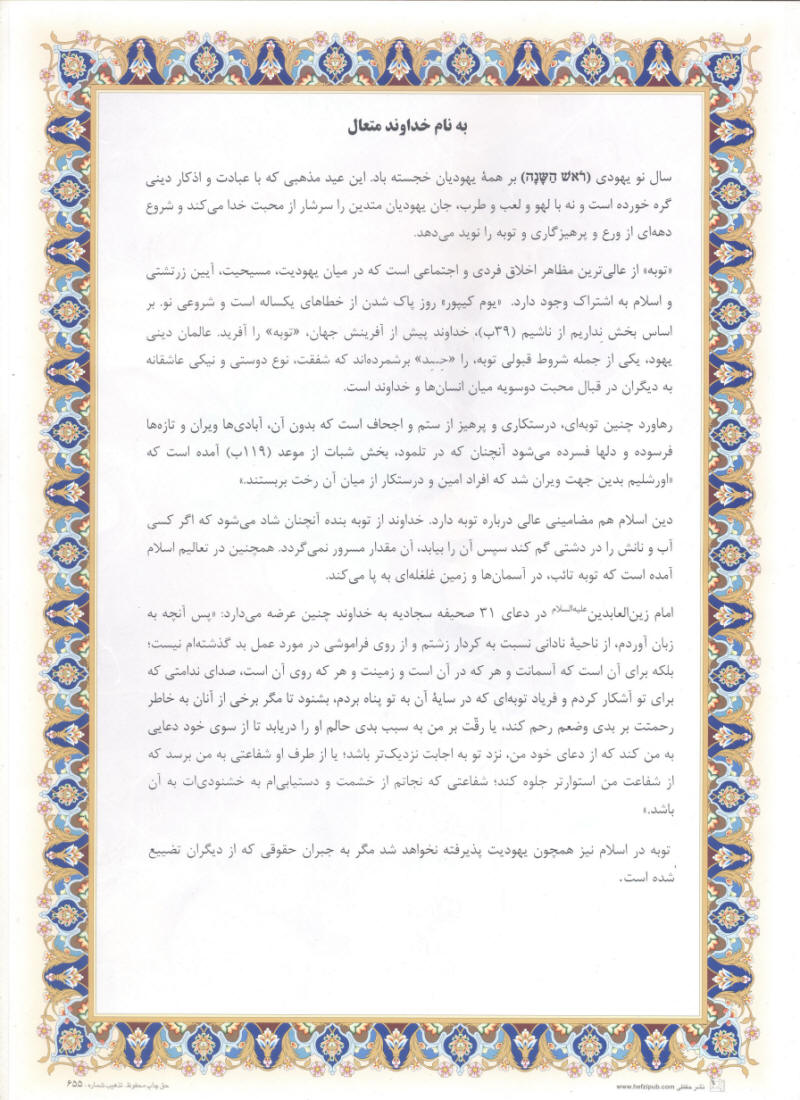 به نام خداوند متعال
سال نو یهودی (רֹאשׁ הַשָּׁנָה) بر همهٔ یهودیان خجسته باد. این عید مذهبی که با عبادت و اذکار دینی
گره خورده است و نه با لهو و لعب و طرب، جان یهودیان متدین را سرشار از محبت خدا می‌کند و شروع
دهه‌ای از ورع و پرهیزگاری و توبه را نوید می‌دهد.
«توبه» از عالی‌ترین مظاهر اخلاق فردی و اجتماعی است که در میان یهودیت، مسیحیت، آیین زرتشتی
و اسلام به اشتراک وجود دارد. «یوم کیپور» روز پاک شدن از خطاهای یکساله است و شروعی نو. بر
اساس بخش نِداریم از ناشیم (۳۹ب)، خداوند پیش از آفرینش جهان، «توبه» را آفرید. عالمان دینی
یهود، یکی از جمله شروط قبولی توبه، را «حِسِد» برشمرده‌اند که شفقت، نوع دوستی و نیکی عاشقانه
به دیگران در قبال محبت دوسویه میان انسان‌ها و خداوند است.
رهاورد چنین توبه‌ای، درستکاری و پرهیز از ستم و اجحاف است که بدون آن، آبادی‌ها ویران و تازه‌ها
فرسوده و دلها فسرده می‌شود آنچنان که در تلمود، بخش شبات از موعد (۱۱۹ب) آمده است که
«اورشلیم بدین جهت ویران شد که افراد امین و درستکار از میان آن رخت بربستند.»
دین اسلام هم مضامینی عالی درباره توبه دارد. خداوند از توبه بنده آنچنان شاد می‌شود که اگر کسی
آب و نانش را در دشتی گم کند سپس آن را بیابد، آن مقدار مسرور نمی‌گردد. همچنین در تعالیم اسلام
آمده است که توبه تائب، در آسمان‌ها و زمین غلغله‌ای به پا می‌کند.
امام زین‌العابدین علیه‌السلام در دعای ۳۱ صحیفه سجادیه به خداوند چنین عرضه می‌دارد: «پس آنچه به
زبان آوردم، از ناحیهٔ نادانی نسبت به کردار زشتم و از روی فراموشی در مورد عمل بد گذشته‌ام نیست؛
بلکه برای آن است که آسمانت و هر که در آن است و زمینت و هر که روی آن است، صدای ندامتی که
برای تو آشکار کردم و فریاد توبه‌ای که در سایهٔ آن به تو پناه بردم، بشنود تا مگر برخی از آنان به خاطر
رحمتت بر بدی وضعم رحم کند، یا رقّت بر من به سبب بدی حالم او را دریابد تا از سوی خود دعایی
به من کند که از دعای خود من، نزد تو به اجابت نزدیک‌تر باشد؛ یا از طرف او شفاعتی به من برسد که
از شفاعت من استوارتر جلوه کند؛ شفاعتی که نجاتم از خشمت و دستیابی‌ام به خشنودی‌ات به آن
باشد.»
توبه در اسلام نیز همچون یهودیت پذیرفته نخواهد شد مگر به جبران حقوقی که از دیگران تضییع
شده است.
حق چاپ محفوظ. تذهیب شماره: ۶۵۵
نشر حفظی www.hefzipub.com